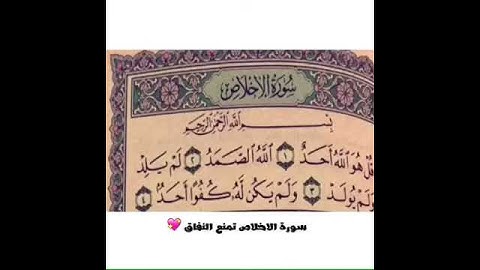 سُورَةُ الإِخْلَاصِ
بِسْمِ اللَّهِ الرَّحْمَٰنِ الرَّحِيمِ
قُلْ هُوَ اللَّهُ أَحَدٌ ١ اللَّهُ الصَّمَدُ ٢ لَمْ يَلِدْ
وَلَمْ يُولَدْ ٣ وَلَمْ يَكُن لَّهُ كُفُوًا أَحَدٌ ٤
سورة الاخلاص تمنع النفاق 💖